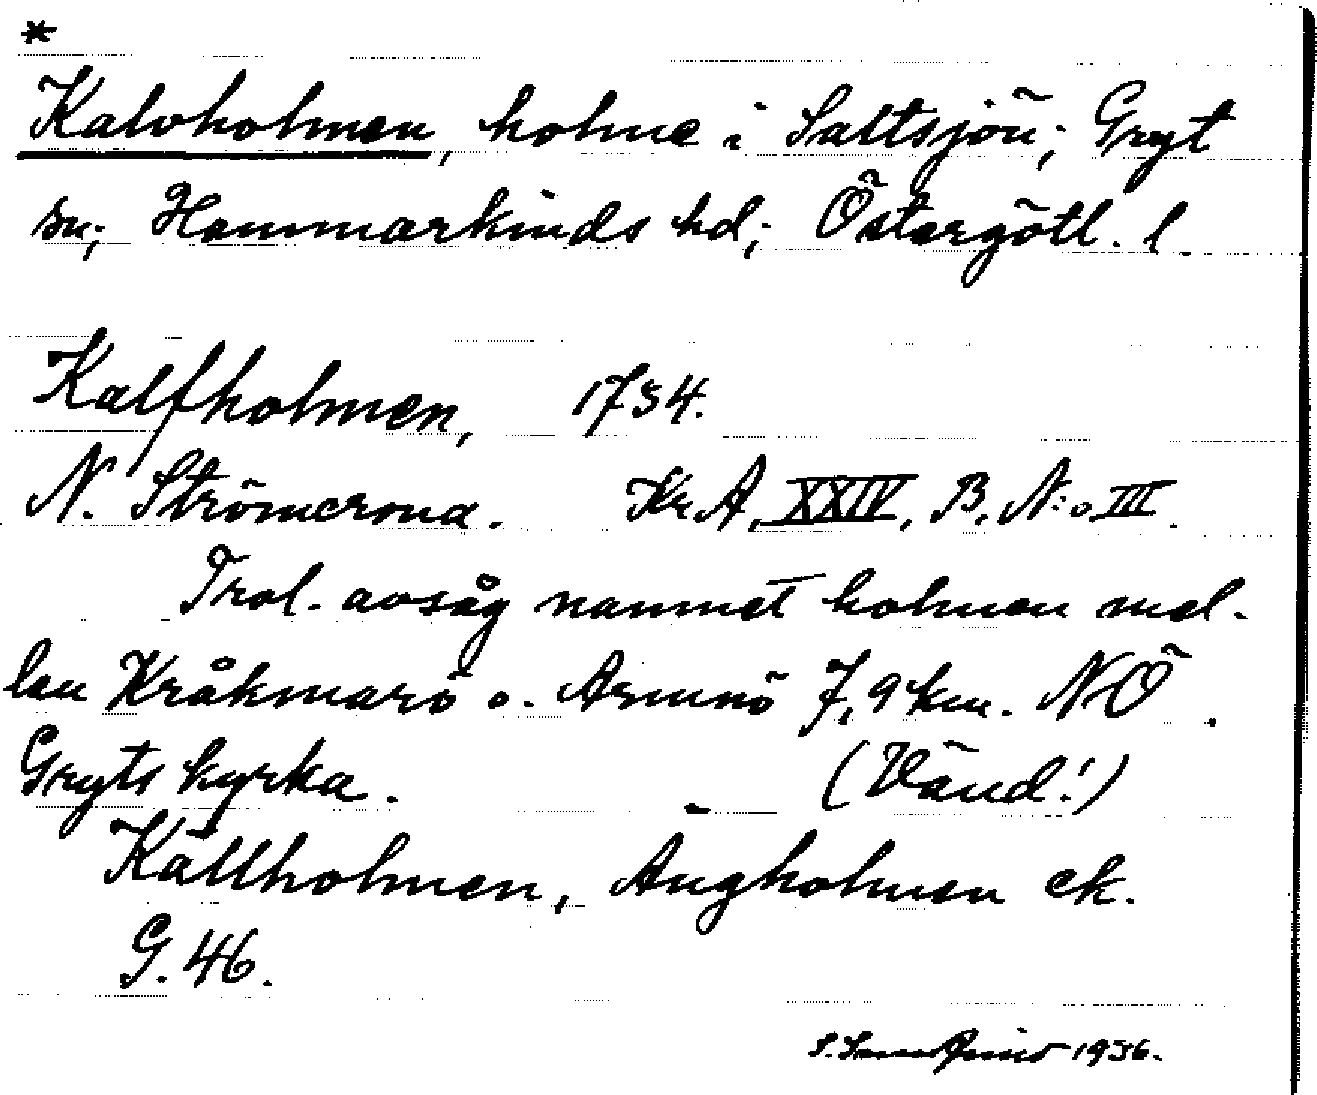 *
Kalvholmen, holme i Saltsjön; Gryt
sn; Hammarkinds hd; Östergötl. l
Kalfholmen, 1734.
N. Strömcrona. Kr. A, XXIV, B, N:o III.
Trol. avsåg namnet holmen mel-
lan Kråkmarö o. Armnö 7,9 km. NÖ.
Gryts kyrka. (Vänd!)
Källholmen, Ängholmen ek.
G. 46.
1936.